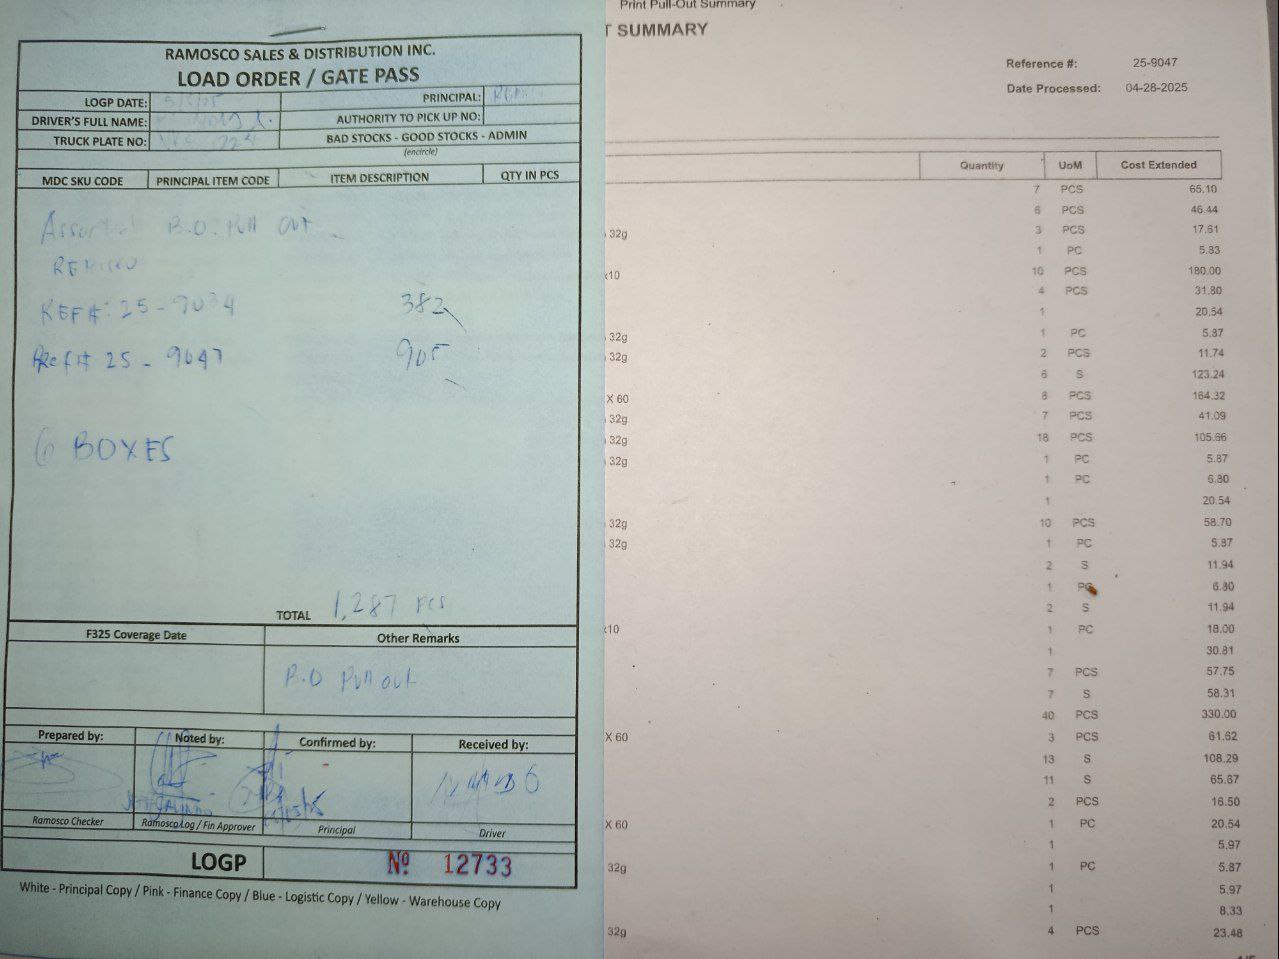 RAMOSCO SALES & DISTRIBUTION INC.
LOAD ORDER / GATE PASS
LOGP DATE:
PRINCIPAL:
DRIVER'S FULL NAME:
AUTHORITY TO PICK UP NO:
TRUCK PLATE NO:
BAD STOCKS - GOOD STOCKS - ADMIN
(encircle)
MDC SKU CODE PRINCIPAL ITEM CODE ITEM DESCRIPTION QTY IN PCS
Assorted B.O. Pull out
REBISCO
REF#: 25-9034 382
Ref# 25-9047 905
6 BOXES
TOTAL 1,287 PCS
F325 Coverage Date Other Remarks
B.O Pull out
Prepared by: Noted by: Confirmed by: Received by:
Ramosco Checker Ramosco Log / Fin Approver Principal Driver
LOGP Nº 12733
White - Principal Copy / Pink - Finance Copy / Blue - Logistic Copy / Yellow - Warehouse Copy
Print Pull-Out Summary
T SUMMARY
Reference #: 25-9047
Date Processed: 04-28-2025
Quantity UoM Cost Extended
7 PCS 65.10
6 PCS 46.44
32g 3 PCS 17.61
1 PC 5.83
x10 10 PCS 180.00
4 PCS 31.80
1 20.54
32g 1 PC 5.87
32g 2 PCS 11.74
6 S 123.24
X 60 8 PCS 164.32
32g 7 PCS 41.09
32g 18 PCS 105.66
32g 1 PC 5.87
1 PC 6.80
1 20.54
32g 10 PCS 58.70
32g 1 PC 5.87
2 S 11.94
1 PC 6.80
2 S 11.94
x10 1 PC 18.00
1 30.81
7 PCS 57.75
7 S 58.31
40 PCS 330.00
X 60 3 PCS 61.62
13 S 108.29
11 S 65.67
2 PCS 16.50
X 60 1 PC 20.54
1 5.97
32g 1 PC 5.87
1 5.97
1 8.33
32g 4 PCS 23.48